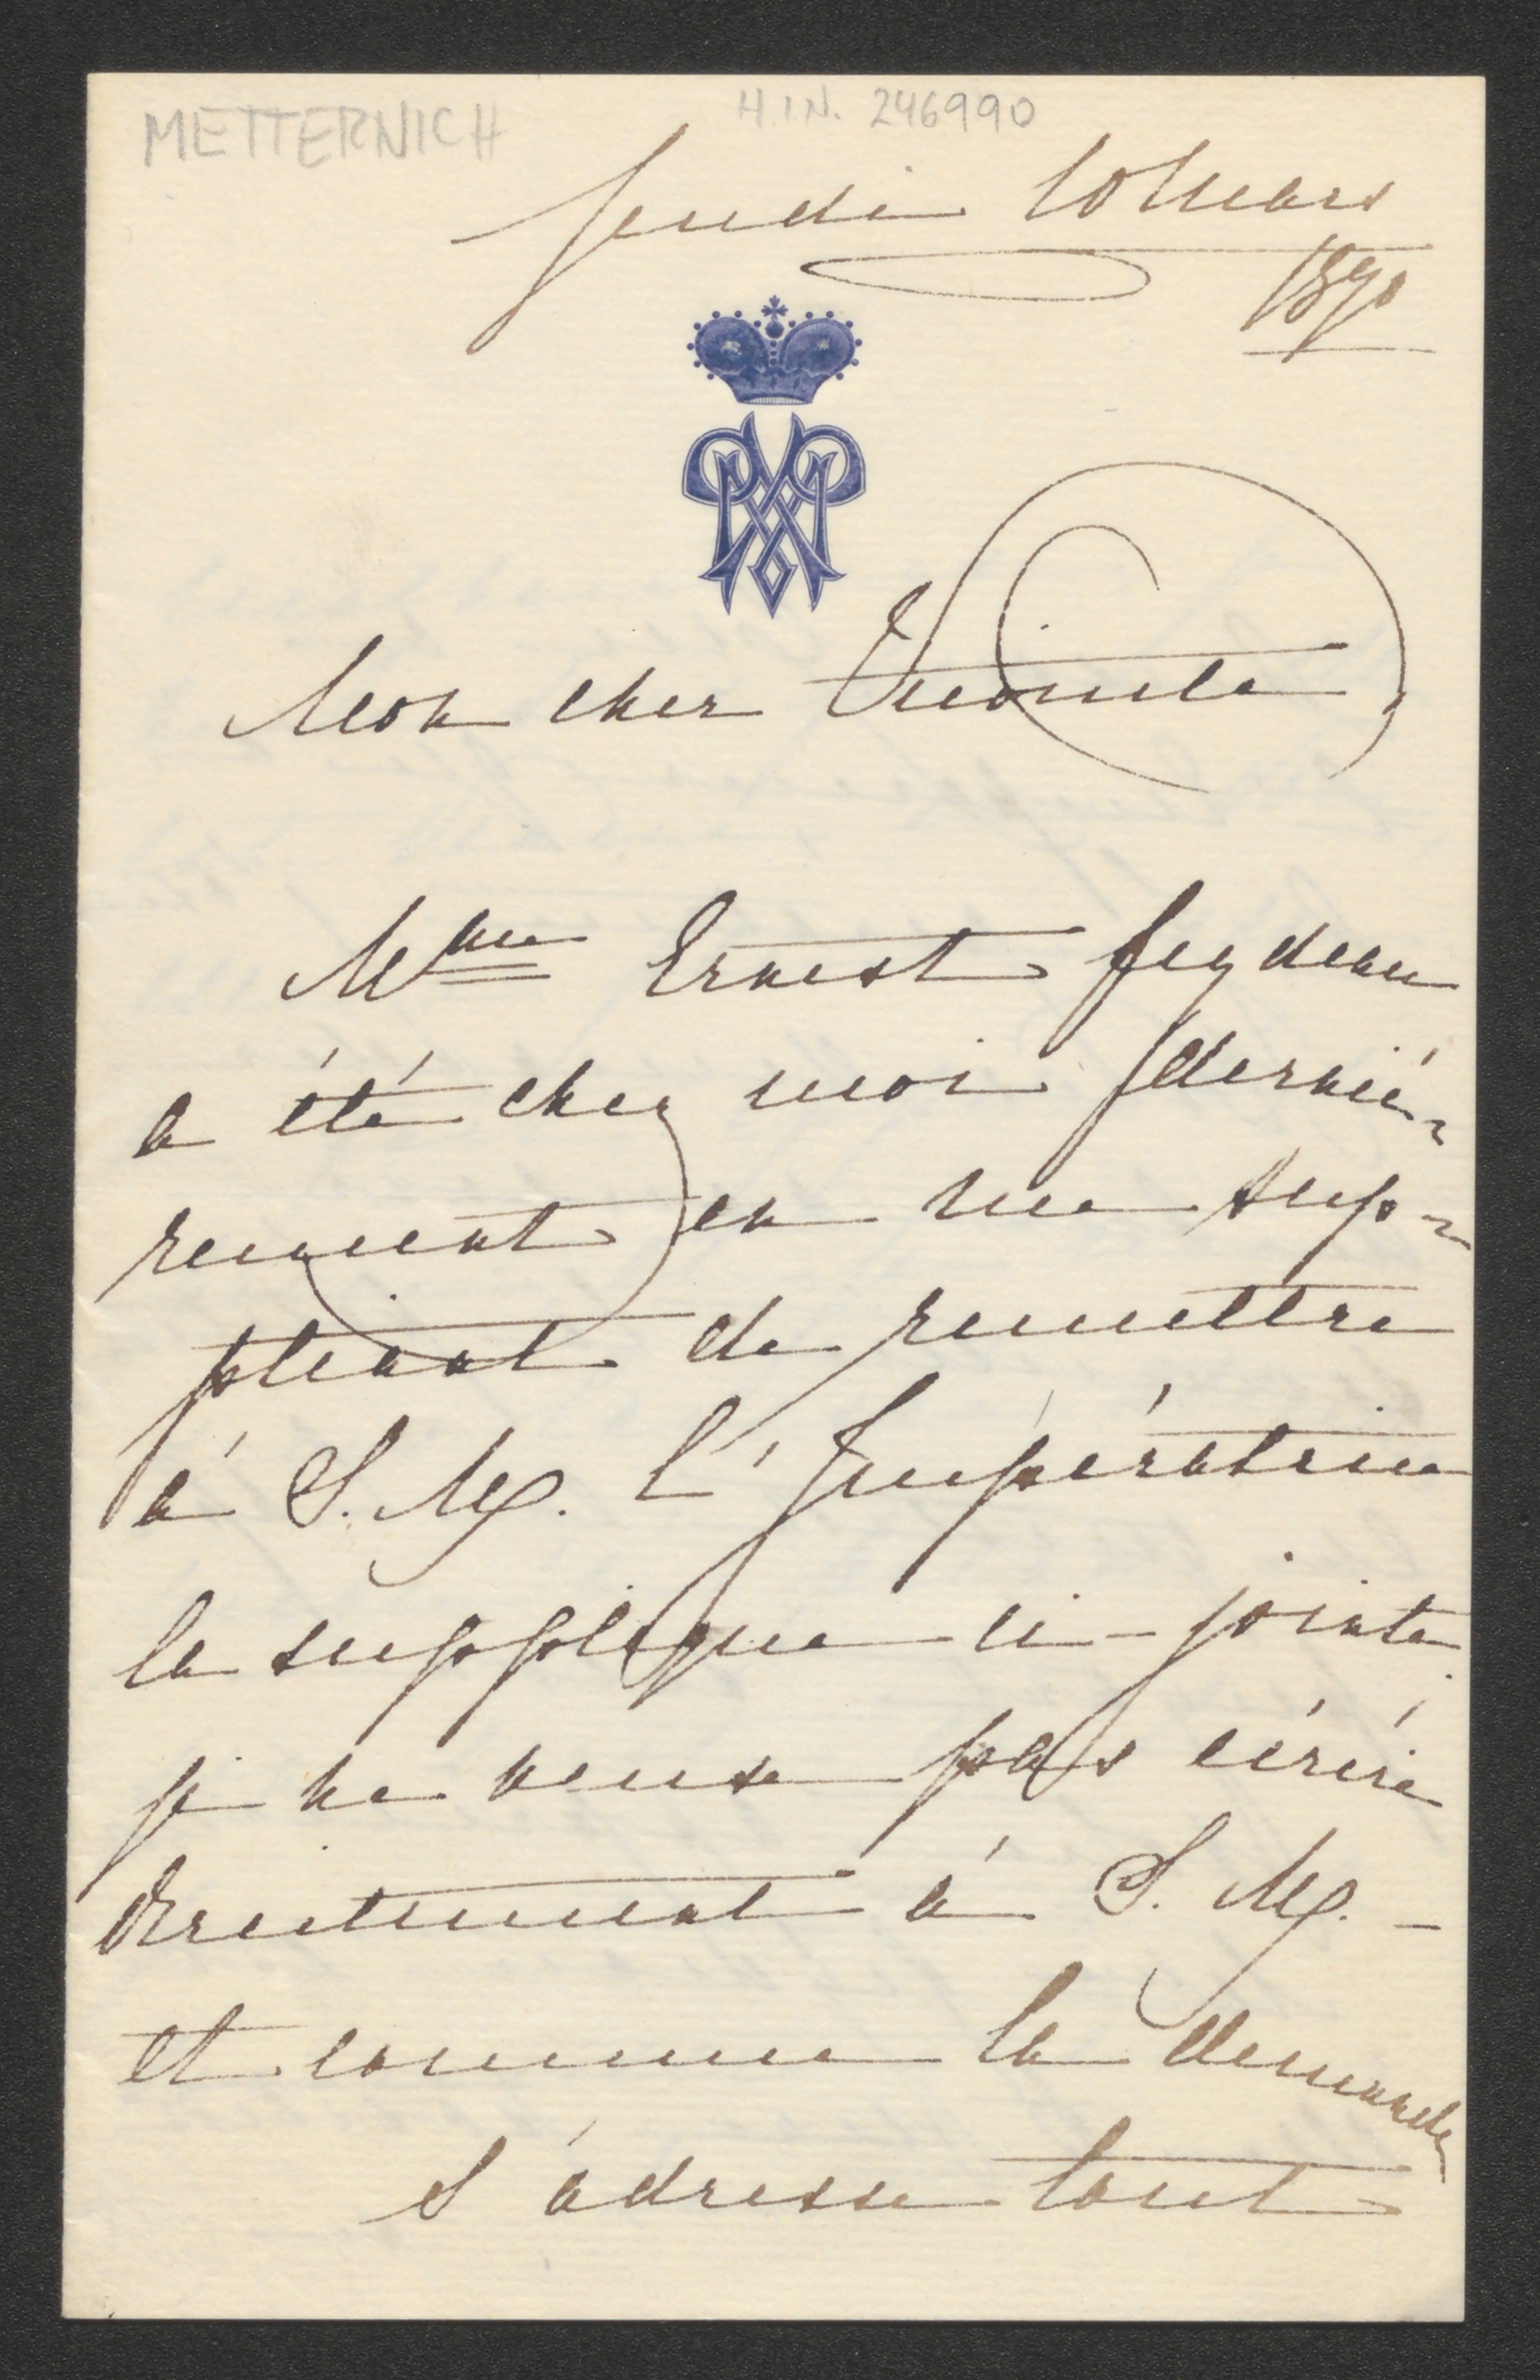 METTERNICH
H.I.N. 246990
Jeudi 10 Mars
1870
Mon cher Vicomte
Mme Ernest Feydeau
a été chez moi derniè-
rement en me sup-
pliant de remettre
à S. M. l'Impératrice
la supplique ci-jointe.
je ne veux pas écrire
directement à S. M. -
et comme la demande
s'adresse tout